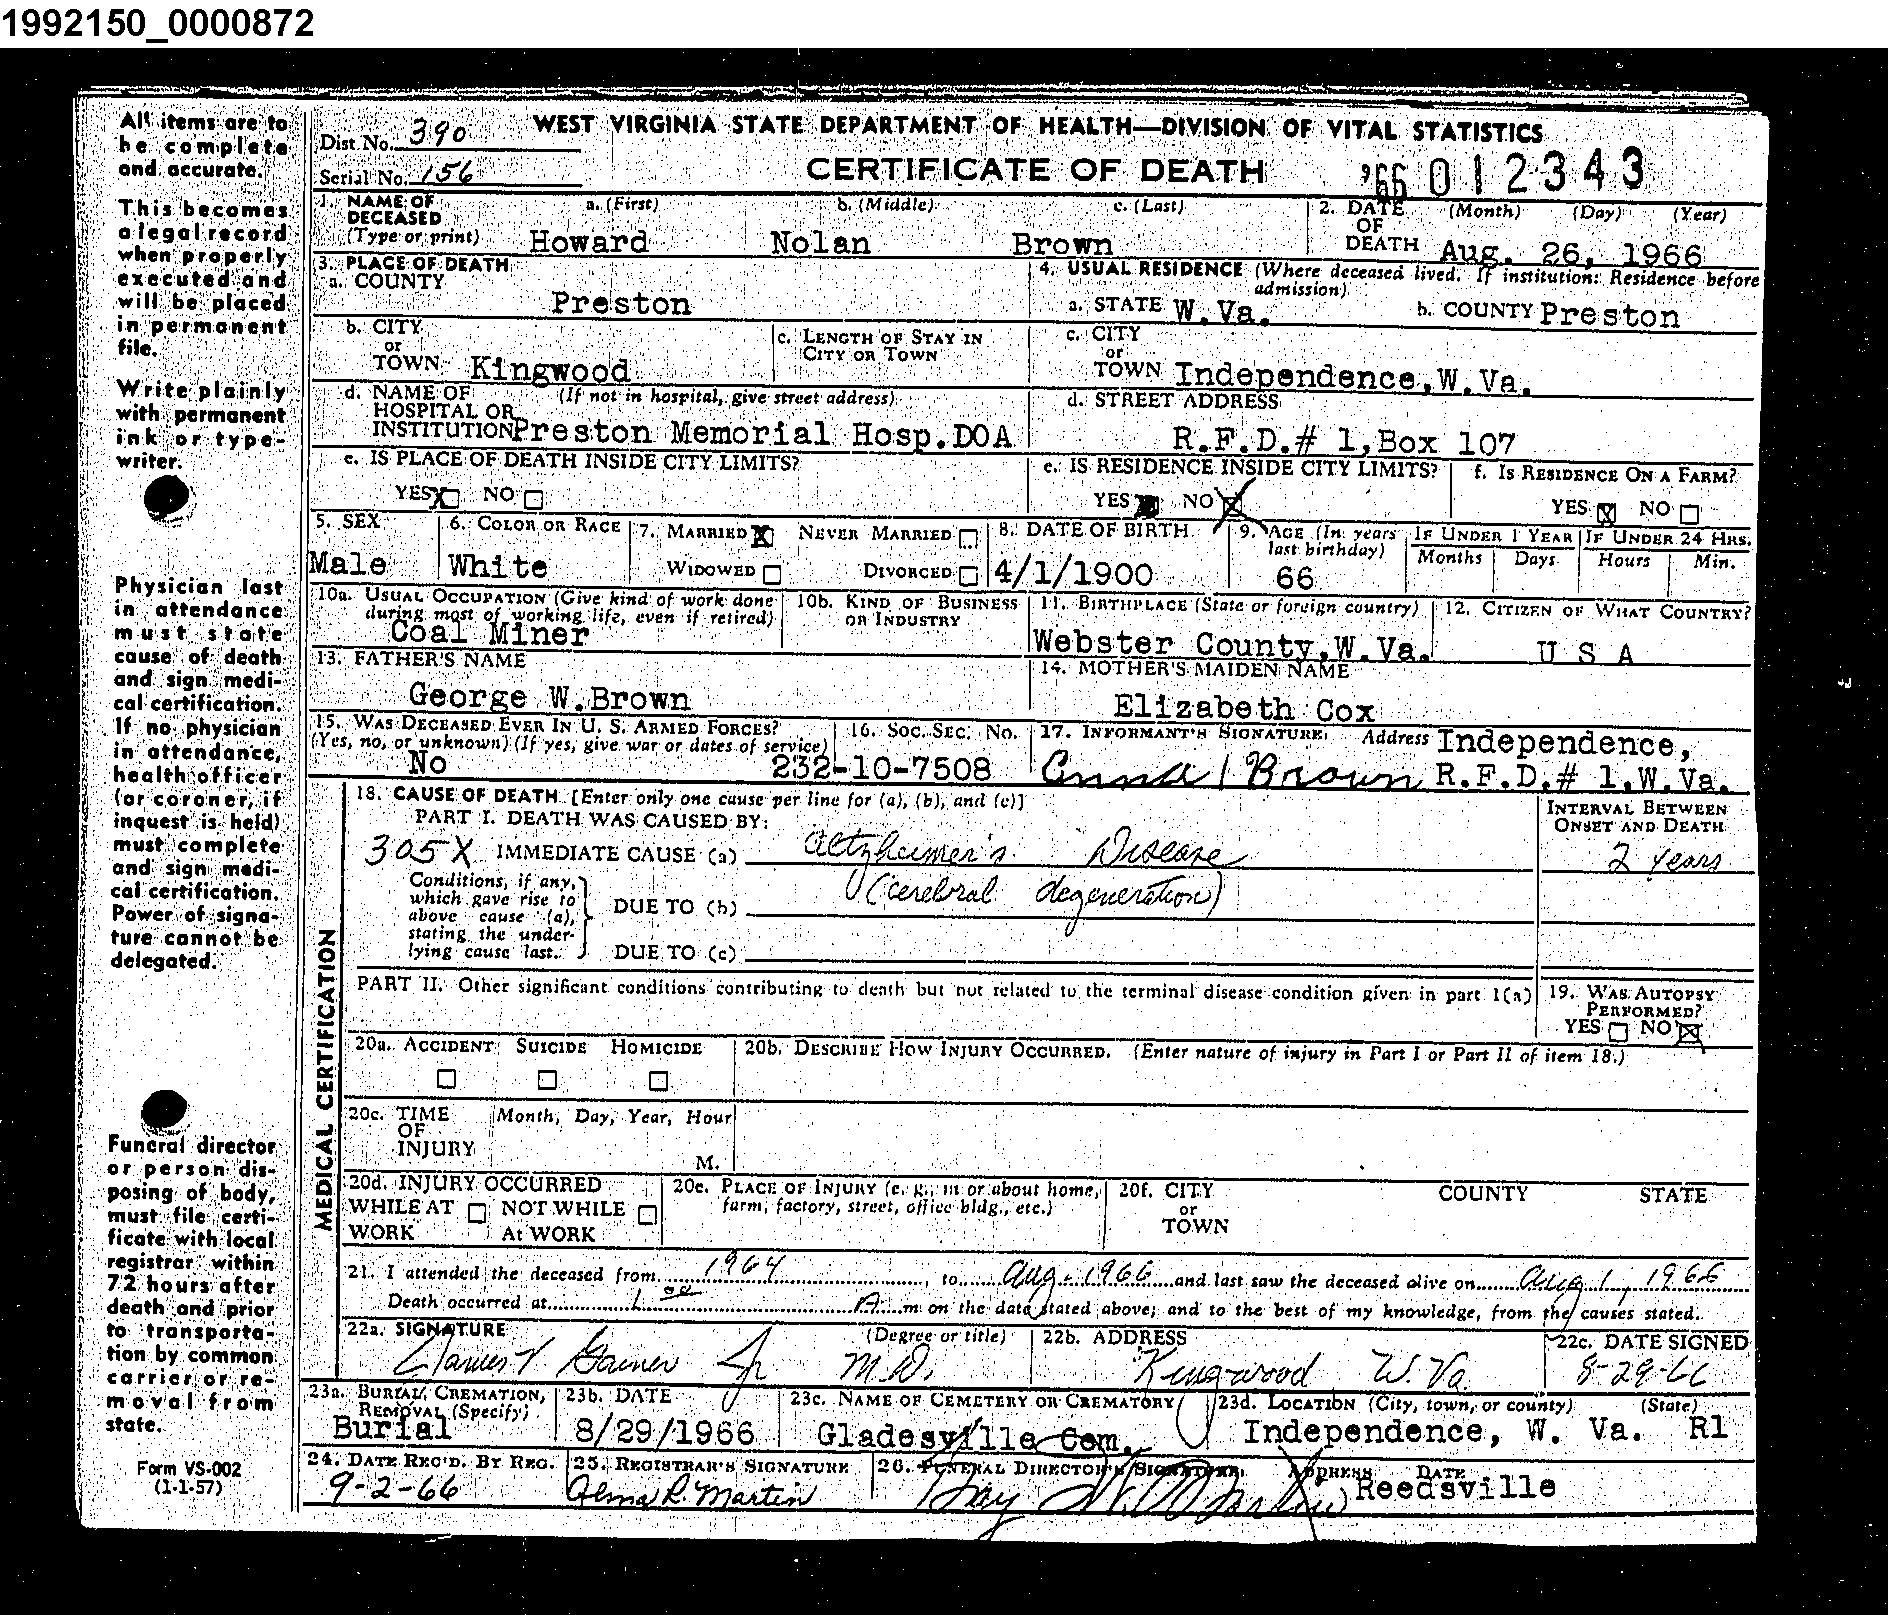 1992150_0000872
All items are to
be complete
and accurate.
This becomes
a legal record
when properly
executed and
will be placed
in permanent
file.
Write plainly
with permanent
ink or type-
writer.
Physician last
in attendance
must state
cause of death
and sign medi-
cal certification.
If no physician
in attendance,
health officer
(or coroner, if
inquest is held)
must complete
and sign medi-
cal certification.
Power of signa-
ture cannot be
delegated.
Funeral director
or person dis-
posing of body,
must file certi-
ficate with local
registrar within
72 hours after
death and prior
to transporta-
tion by common
carrier or re-
moval from
state.
Form VS-002
(1-1-57)
Dist. No. 390
Serial No. 156
WEST VIRGINIA STATE DEPARTMENT OF HEALTH—DIVISION OF VITAL STATISTICS
CERTIFICATE OF DEATH
'66 012343
1. NAME OF DECEASED (Type or print) a. (First) b. (Middle) c. (Last)
Howard Nolan Brown
2. DATE OF DEATH (Month) (Day) (Year)
Aug. 26, 1966
3. PLACE OF DEATH
a. COUNTY
Preston
4. USUAL RESIDENCE (Where deceased lived. If institution: Residence before admission)
a. STATE W.Va. b. COUNTY Preston
b. CITY or TOWN Kingwood
c. LENGTH OF STAY IN CITY OR TOWN
c. CITY or TOWN Independence,W.Va.
d. NAME OF HOSPITAL OR INSTITUTION (If not in hospital, give street address)
Preston Memorial Hosp.DOA
d. STREET ADDRESS
R.F.D.# 1,Box 107
e. IS PLACE OF DEATH INSIDE CITY LIMITS?
YES X NO
e. IS RESIDENCE INSIDE CITY LIMITS?
YES NO X
f. IS RESIDENCE ON A FARM?
YES X NO
5. SEX
Male
6. COLOR OR RACE
White
7. MARRIED X NEVER MARRIED
WIDOWED DIVORCED
8. DATE OF BIRTH
4/1/1900
9. AGE (In years last birthday)
66
IF UNDER 1 YEAR
Months Days
IF UNDER 24 HRS.
Hours Min.
10a. USUAL OCCUPATION (Give kind of work done during most of working life, even if retired)
Coal Miner
10b. KIND OF BUSINESS OR INDUSTRY
11. BIRTHPLACE (State or foreign country)
Webster County,W.Va.
12. CITIZEN OF WHAT COUNTRY?
U S A
13. FATHER'S NAME
George W.Brown
14. MOTHER'S MAIDEN NAME
Elizabeth Cox
15. WAS DECEASED EVER IN U. S. ARMED FORCES?
(Yes, no, or unknown) (If yes, give war or dates of service)
No
16. SOC. SEC. No.
232-10-7508
17. INFORMANT'S SIGNATURE Address
Anna Brown Independence, R.F.D.# 1,W.Va.
MEDICAL CERTIFICATION
18. CAUSE OF DEATH [Enter only one cause per line for (a), (b), and (c)]
PART I. DEATH WAS CAUSED BY:
INTERVAL BETWEEN ONSET AND DEATH
305X IMMEDIATE CAUSE (a) Altzheimer's Disease 2 years
Conditions, if any, which gave rise to above cause (a), stating the under-lying cause last.
DUE TO (b) (cerebral degeneration)
DUE TO (c)
PART II. Other significant conditions contributing to death but not related to the terminal disease condition given in part 1(a)
19. WAS AUTOPSY PERFORMED?
YES NO X
20a. ACCIDENT SUICIDE HOMICIDE
20b. DESCRIBE HOW INJURY OCCURRED. (Enter nature of injury in Part I or Part II of item 18.)
20c. TIME OF INJURY Month, Day, Year, Hour
M.
20d. INJURY OCCURRED
WHILE AT WORK NOT WHILE At WORK
20e. PLACE OF INJURY (e. g., in or about home, farm, factory, street, office bldg., etc.)
20f. CITY or TOWN COUNTY STATE
21. I attended the deceased from 1964, to Aug. 1966 and last saw the deceased alive on Aug 1, 1966
Death occurred at 1 00 A m on the date stated above; and to the best of my knowledge, from the causes stated.
22a. SIGNATURE (Degree or title)
Gainer Jr M.D.
22b. ADDRESS
Kingwood W.Va.
22c. DATE SIGNED
8-29-66
23a. BURIAL, CREMATION, REMOVAL (Specify)
Burial
23b. DATE
8/29/1966
23c. NAME OF CEMETERY OR CREMATORY
Gladesville Cem.
23d. LOCATION (City, town, or county) (State)
Independence, W. Va. R1
24. DATE REC'D. BY REG.
9-2-66
25. REGISTRAR'S SIGNATURE
Alma R. Martin
26. FUNERAL DIRECTOR'S SIGNATURE ADDRESS DATE
Reedsville